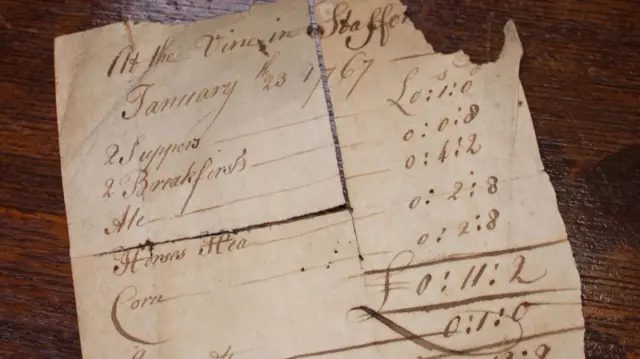 At the Vine in Staffo
January 23th 1767
2 Suppers £0:1:0
2 Breakfirst 0:0:8
Ale 0:4:2
Horses Hea 0:2:8
Corn 0:2:8
£0:11:2
0:1:9